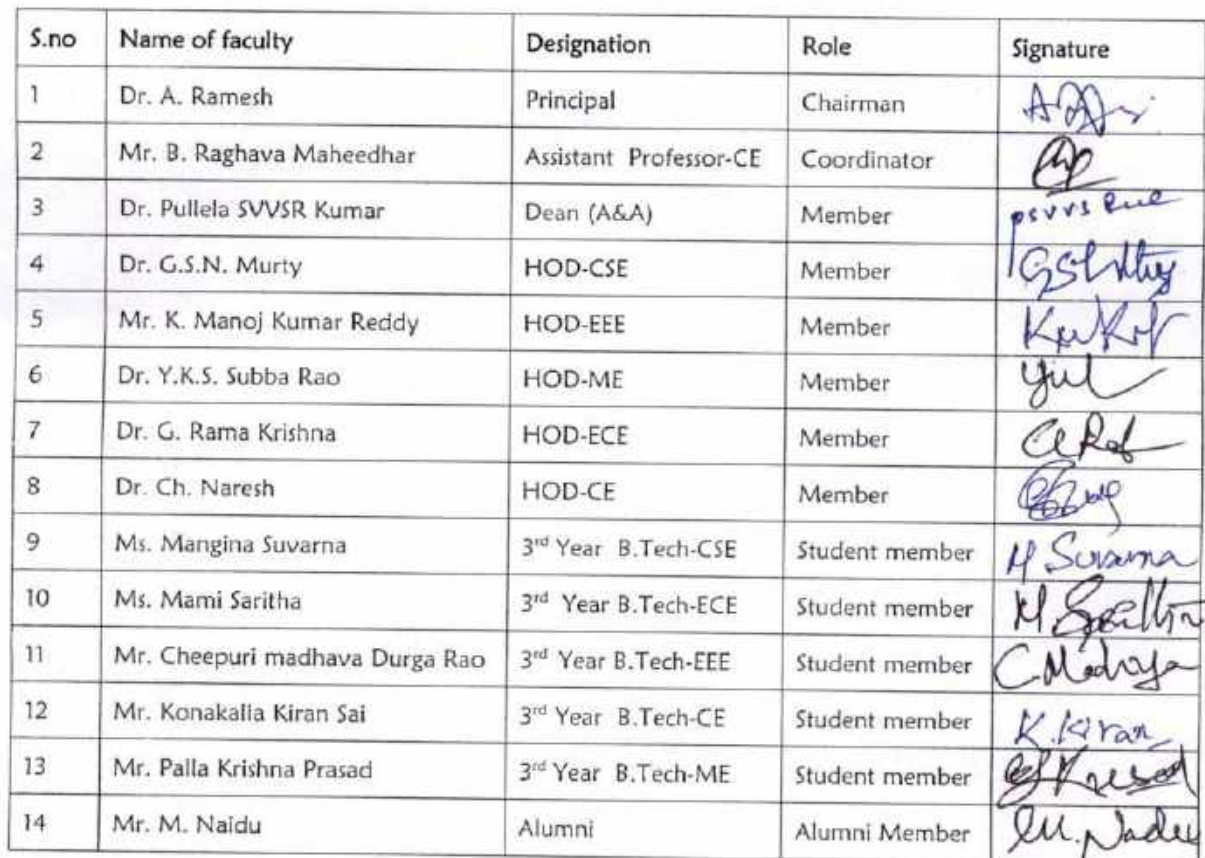 S.no Name of faculty Designation Role Signature
1 Dr. A. Ramesh Principal Chairman
2 Mr. B. Raghava Maheedhar Assistant Professor-CE Coordinator
3 Dr. Pullela SVVSR Kumar Dean (A&A) Member psvvs
4 Dr. G.S.N. Murty HOD-CSE Member
5 Mr. K. Manoj Kumar Reddy HOD-EEE Member
6 Dr. Y.K.S. Subba Rao HOD-ME Member
7 Dr. G. Rama Krishna HOD-ECE Member
8 Dr. Ch. Naresh HOD-CE Member
9 Ms. Mangina Suvarna 3rd Year B.Tech-CSE Student member M Suvarna
10 Ms. Mami Saritha 3rd Year B.Tech-ECE Student member
11 Mr. Cheepuri madhava Durga Rao 3rd Year B.Tech-EEE Student member
12 Mr. Konakalla Kiran Sai 3rd Year B.Tech-CE Student member K. Kiran
13 Mr. Palla Krishna Prasad 3rd Year B.Tech-ME Student member
14 Mr. M. Naidu Alumni Alumni Member